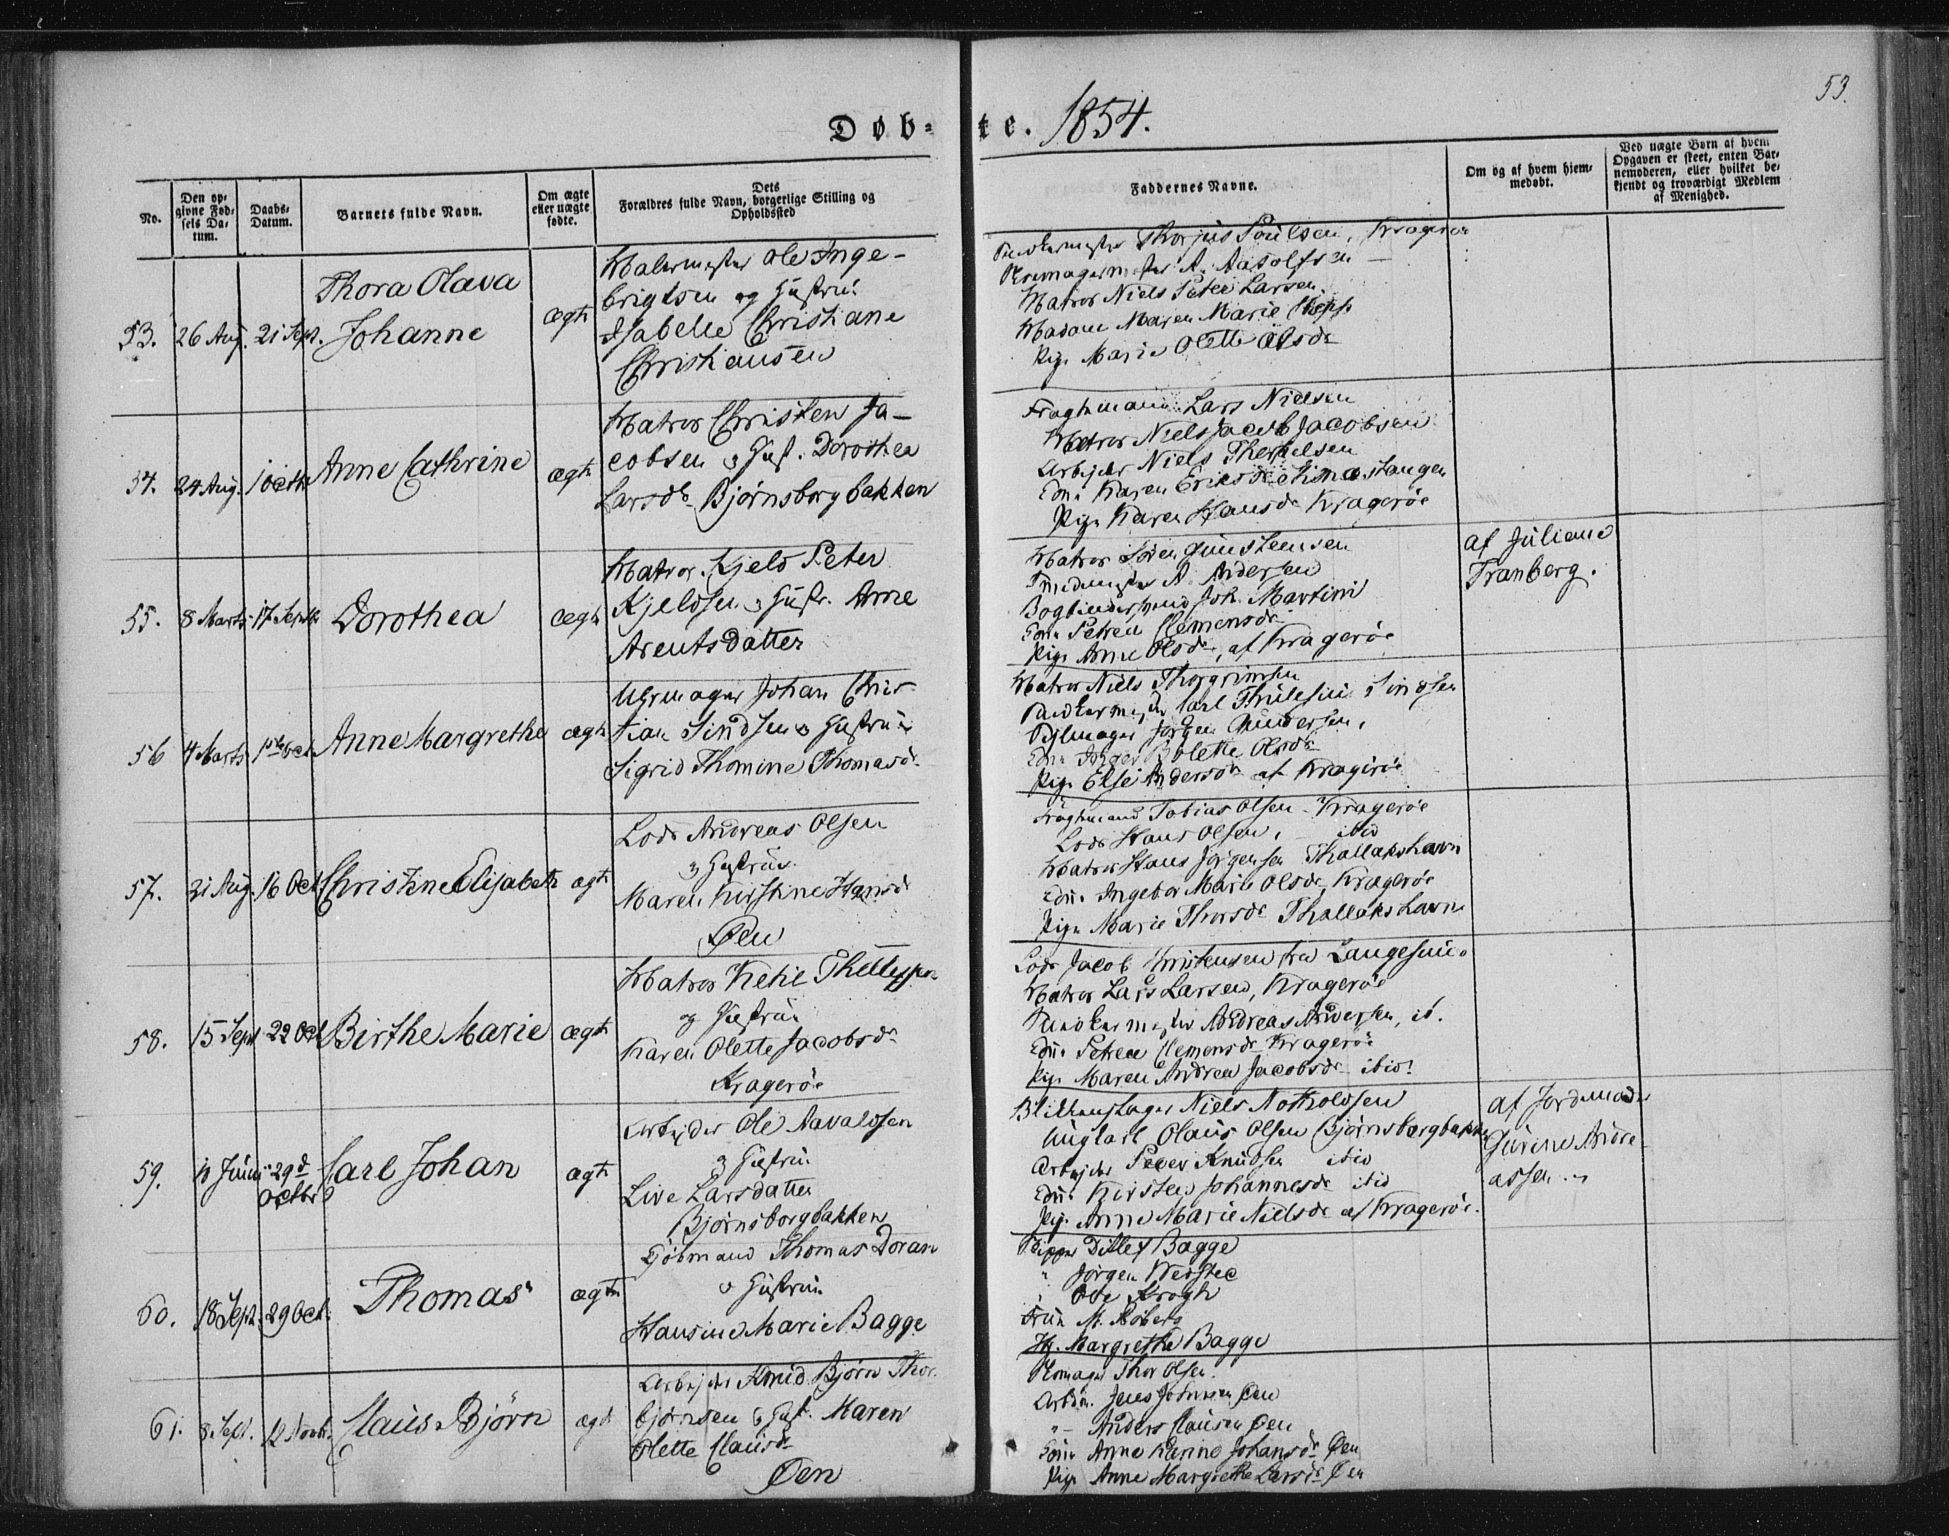 53.
Døb- te. 1854.
No.
Den op-
givne Fød-
sels Da-
tum.
Daabs-
Datum.
Barnets fulde Navn.
Om ægte
eller uægte
fødte.
Dets
Forældres fulde Navn, borgerlige Stilling og
Opholdssted
Faddernes Navne.
Om og af hvem hjem-
medøbt.
Ved uægte Børn af hvem
Opgaven er skeet, enten Bar-
nemoderen, eller hvilket be-
kjendt og troværdigt Medlem
af Menighed.
53. 26 Aug. 21 Sept.
Thora Olava
Johanne
ægte
Malermester Ole Inge-
brigtsen og Hustrue
Isabelle Christiane
Christiansen
Thorjus Poulsen, Kragerøe
A. Adolfsen —
Matros Niels Peter Larsen
Madam Maren Marie
Pige Marie Olette Olsdr
54. 24 Aug. 1 Octbr
Anne Cathrine
ægte
Matros Christen Ja-
cobsen og Hust. Dorothea
Larsdr Bjørnsborgbakken
Fragtmand Lars Nielsen
Matros Niels Jacob Jacobsen
Arbejder Niels Therkelsen
Edm: Karen Eriksdr
Pige Karen Hansdr Kragerøe
55. 8 Marts 17 Septbr
Dorothea
ægte
Matros Kjeld Peter
Kjeldsen og Hustr. Anne
Arentsdatter
Matros Søren Gunstensen
Smedmester A. Andersen
Bogbindersvend Joh. Martini
Edm: Petrea Clemensdr
Pige Anne Olsdr, af Kragerøe
af Juliane
Tranberg.
56 4 Marts 1ste Oct.
Anne Margrethe
ægte
Uhrmager Johan Chris-
tian Sindsen og Hustrue
Sigrid Thomine Thomasdr
Matros Niels Thorgrimsen
Carl Sindsen
Jørgen Gundersen,
Edm: Inger Bolette Olsdr
Pige Else Andersdr af Kragerøe
57. 31 Aug. 16 Oct
Christine Elisabeth
ægte
Lods Andreas Olsen
og Hustrue
Maren Kirstine Hansdr
Øen
Fragtmand Tobias Olsen Kragerøe
Lods Hans Olsen, ibid
Matros Hans Jørgensen Thallakshavn
Edm: Ingebor Marie Olsdr, Kragerøe
Pige Marie Thorsdr Thallakshavn
58. 15 Sept 22 Oct
Birthe Marie
ægte
Matros Ketil
og Hustrue
Karen Olette Jacobsdr
Kragerøe
Lods Jacob Christensen fra Langesund
Matros Lars Larsen, Kragerøe
Andreas Andersen, ib.
Edm: Petrea Clemensdr Kragerøe
Pige Maren Andrea Jacobsdr ibid:
59. 11 Junii 29d
Octbr
Carl Johan
ægte
Arbejder Ole Aavaldsen
og Hustrue
Live Larsdatter
Bjørnsborgbakken
Blikkenslager Niels
Ungkarl Olaus Olsen Bjørnsborgbakken
Arbejder Peder Knudsen ibid
Edm: Kirsten Johannesdr ibid
Pige Anne Marie Nielsdr af Kragerøe.
af Jordemoder
Gurine Andre-
assen
60. 18 Sept. 29 Oct.
Thomas
ægte
Kjøbmand Thomas Doran
og Hustrue
Hansine Marie Bagge
Skipper Ditlef Bagge
" Jørgen Wedstee
" Ove Krogh
Frue M. Roberg
Jfr. Margrethe Bagge
61. 8 Sept. 12 Novbr.
Claus Bjørn
ægte
Arbejder Knud Bjørn Thor-
bjørnsen og Hust. Maren
Olette Clausdr
Øen
Skomager Thor Olsen.
Arbdm. Jens Johnsen Øen
" – Anders Clausen Øen
Edm: Anne Karine Johansdr Øen
Pige Anne Margrethe Larsdr Øen